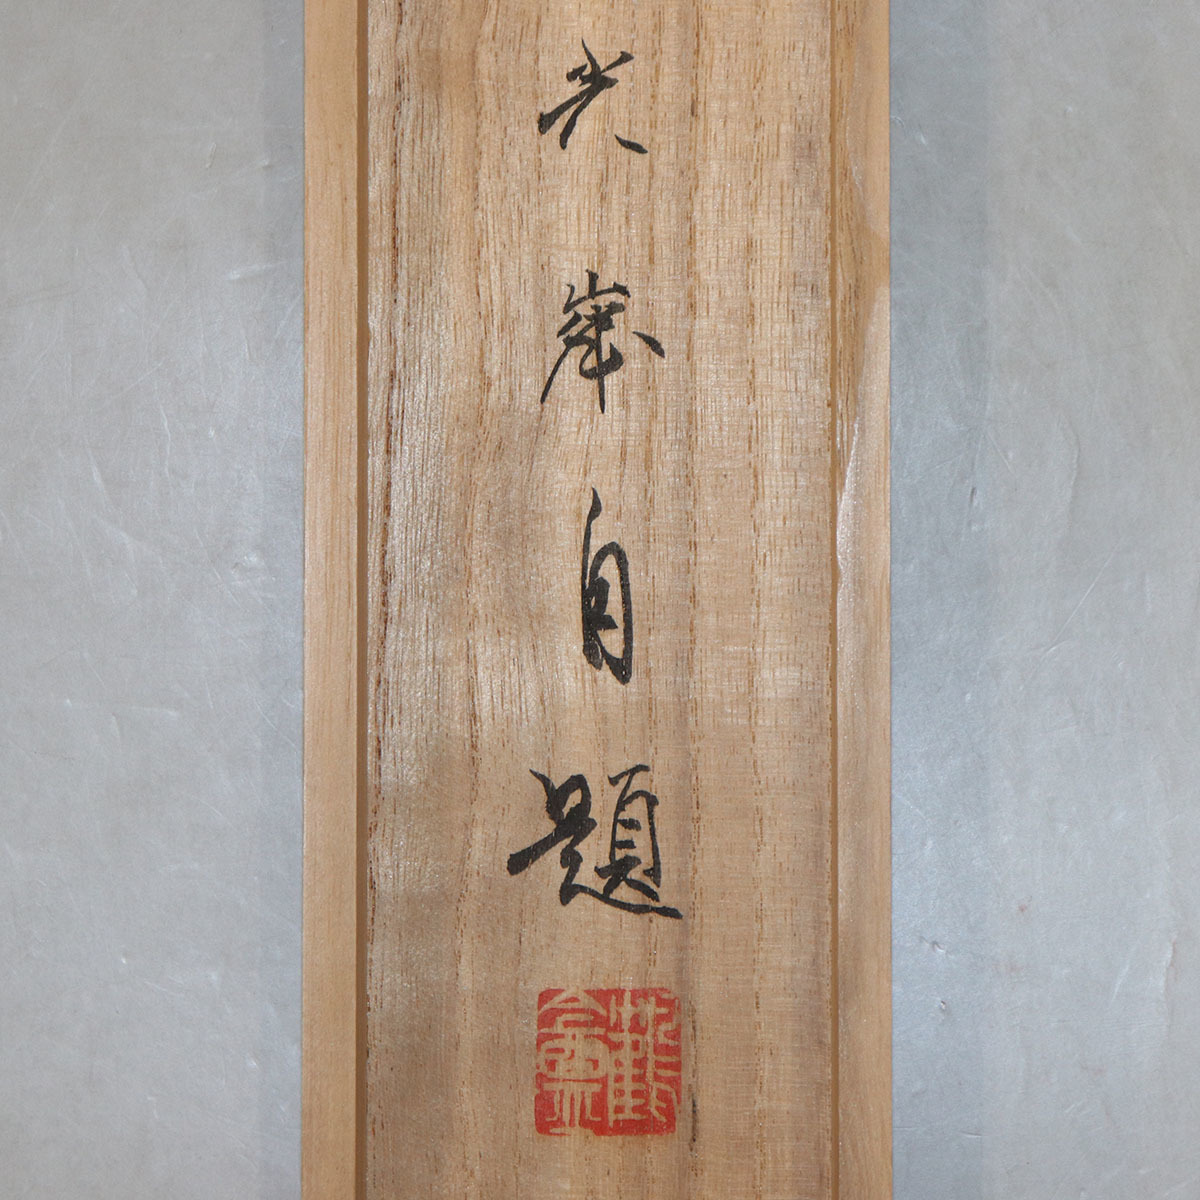 光峯自題